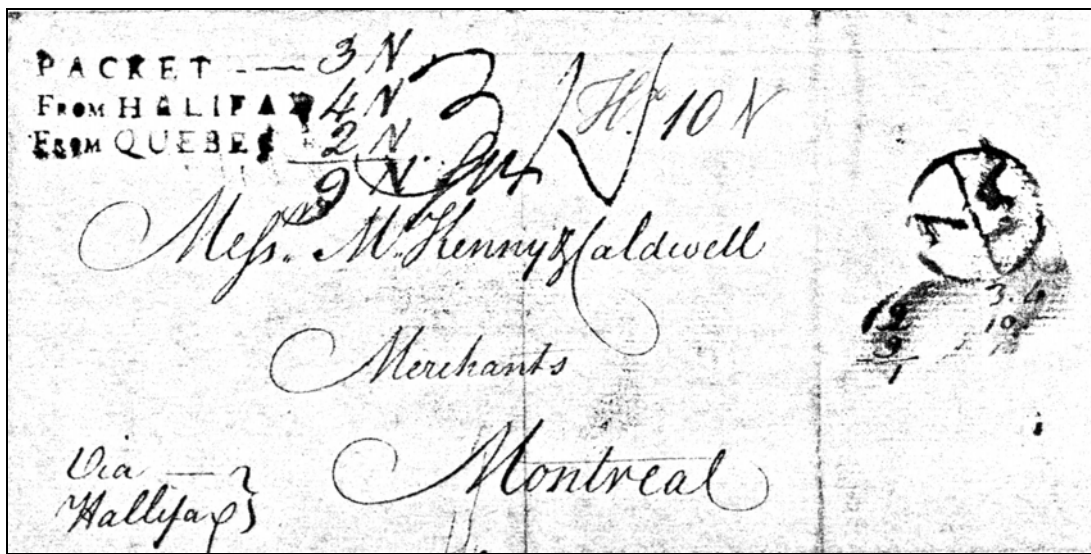 PACKET -- 3 N
FROM HALIFAX 4 N
FROM QUEBEC 2 N
9 N
10 N
Messrs. McKenny & Caldwell
Merchants
Montreal
Via
Hallifax
3.4
10
9
1